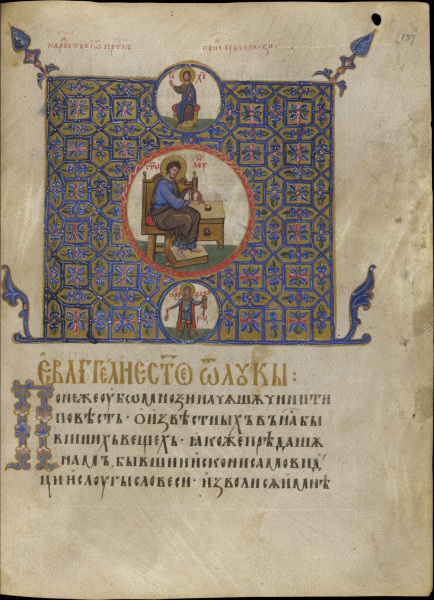 137
ЕѴАГГЕЛИЕ СТ҃ОЕ Ѿ ЛУКЫ :
Понеже оубѡ мнози начѧшѧ чинити
повѣсть · ѡ извѣстныхъ въ на бы
вшихъ вещехъ · ꙗкоже прѣдашѧ
намъ, бывшии искони самовид
ци и слоугы словеси · изволисѧ и мнѣ